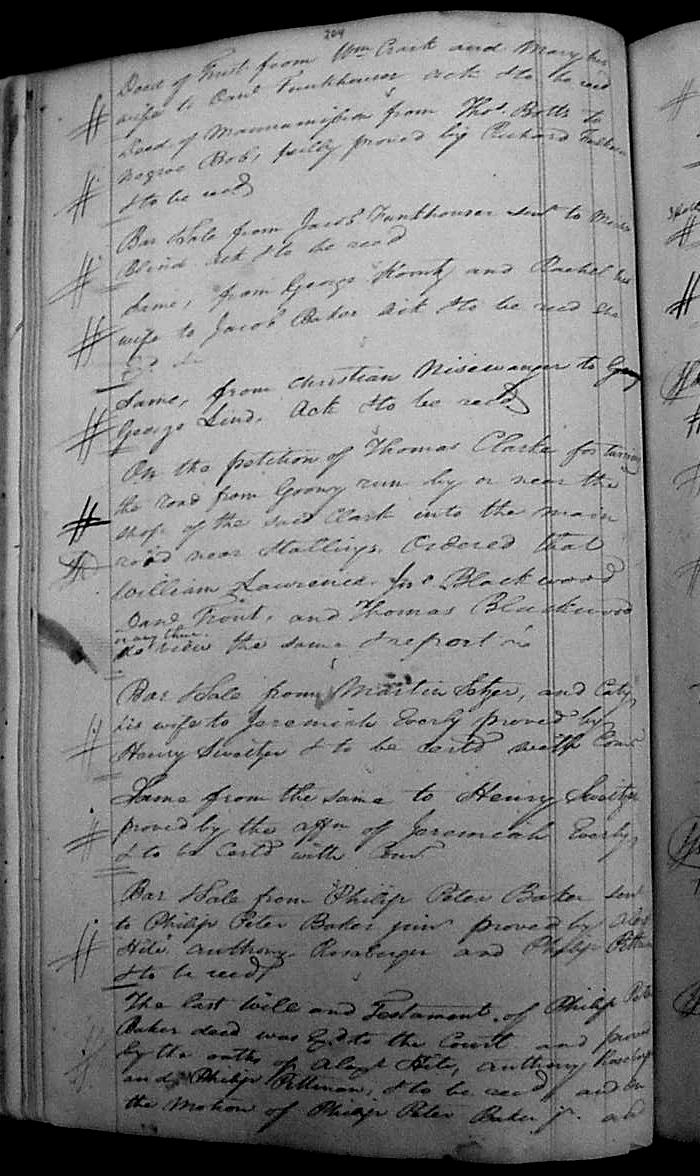 204
Deed of Trust from Wm Crark and Mary her
wife to Danl Funkhouser ack & to be recd
Deed of Manumission from Thos. Botts to
Negroe Bob, fully proved by Richard
& to be recd
Bar & Sale from Jacob Funkhouser senr to
Blind Ack & to be recd
Same, from George and Rachel his
wife to Jacob Baker Ack & to be recd she
Same, from Christian Nisewanger to
George Lind. Ack & to be recd
On the petition of Thomas Clarke for turning
the road from Goony run by or near the
shop of the said Clark into the main
road near Stallings. Ordered that
William Lawrence. Jno Blackwood
Danl Trout, and Thomas Blackwood
or any three.
do view the same & report &c
Bar & Sale from Martin Setzer, and Caty,
his wife to Jeremiah Everly proved by
Henry Sweitzer & to be certd with Com
Same from the same to Henry Sweitzer
proved by the affn of Jeremiah Everly,
& to be Certd with Com
Bar & Sale from Philip Peter Baker senr
to Philip Peter Baker junr proved by Alexr
Hite Anthony Roseberger and Philip Pittman
& to be recd
The last Will and Testament of Philip Peter
Baker decd was Exd to the Court and proved
by the oaths of Alexr Hite, Anthony
and Philip Pittman, & to be recd and on
the Motion of Philip Peter Baker jr. and